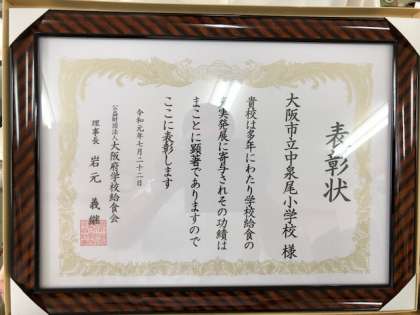 表彰状
大阪市立中泉尾小学校 様
貴校は多年にわたり学校給食の
充実発展に寄与されその功績は
まことに顕著でありますので
ここに表彰します
令和元年七月二十二日
公益財団法人大阪府学校給食会
理事長 岩元義継